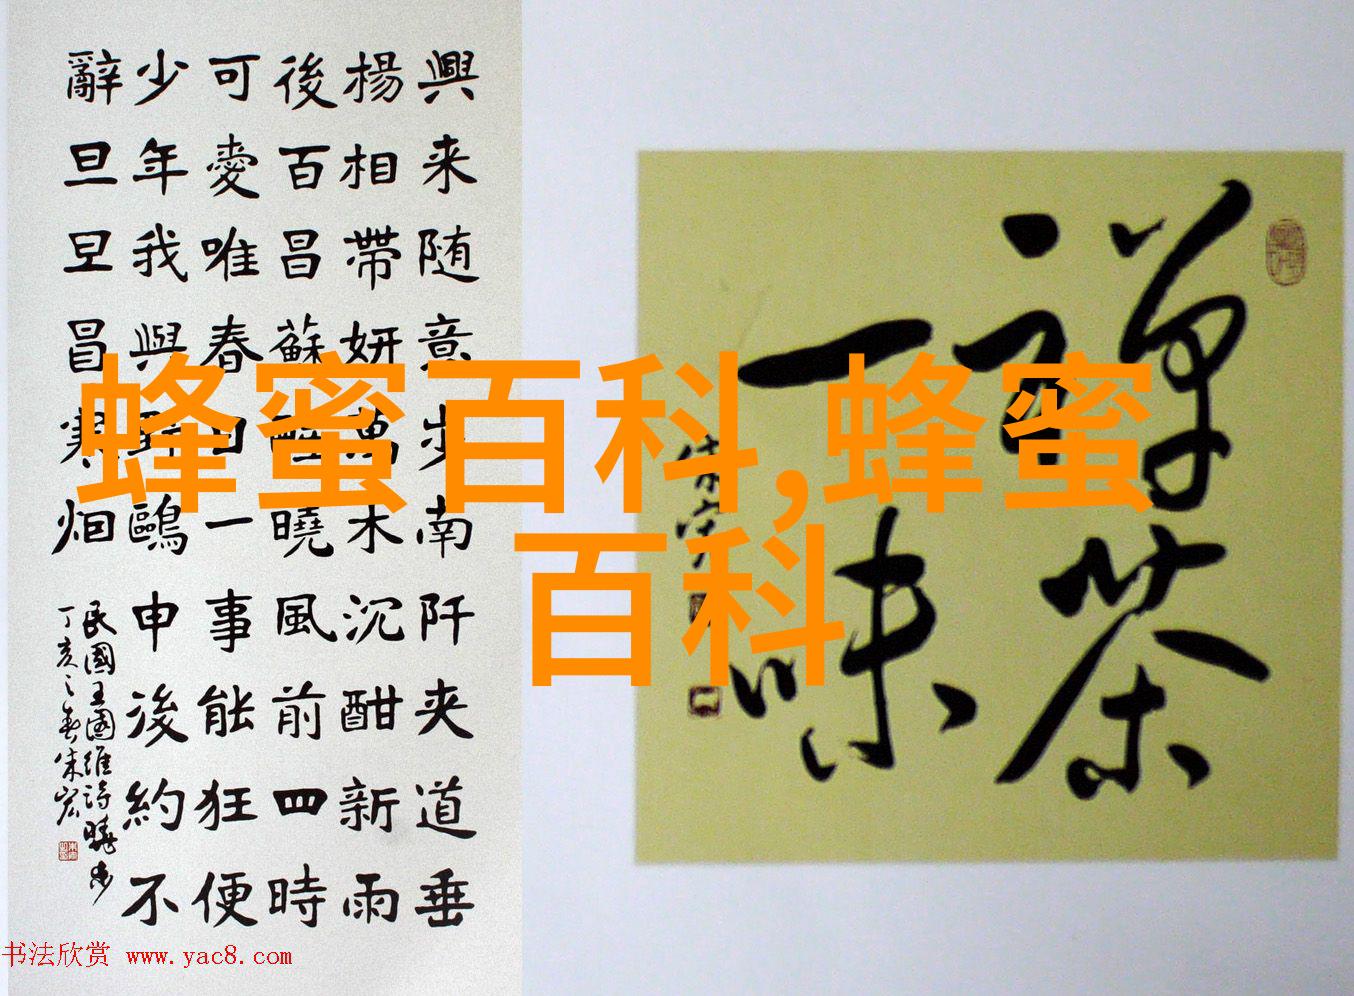 興来随意步南阡夹道垂
楊相帶妍萬木沉酣新雨
後百昌蘇醒曉風前四時
可愛唯春日一事能狂便
少年我與野鷗申後約不
辭旦旦冒寒烟
民國王國維詩曉步
丁亥之春朱宏
禪茶
一味
朱宏
蜂蜜百科,蜂蜜
百科
书法欣赏 www.yac8.com